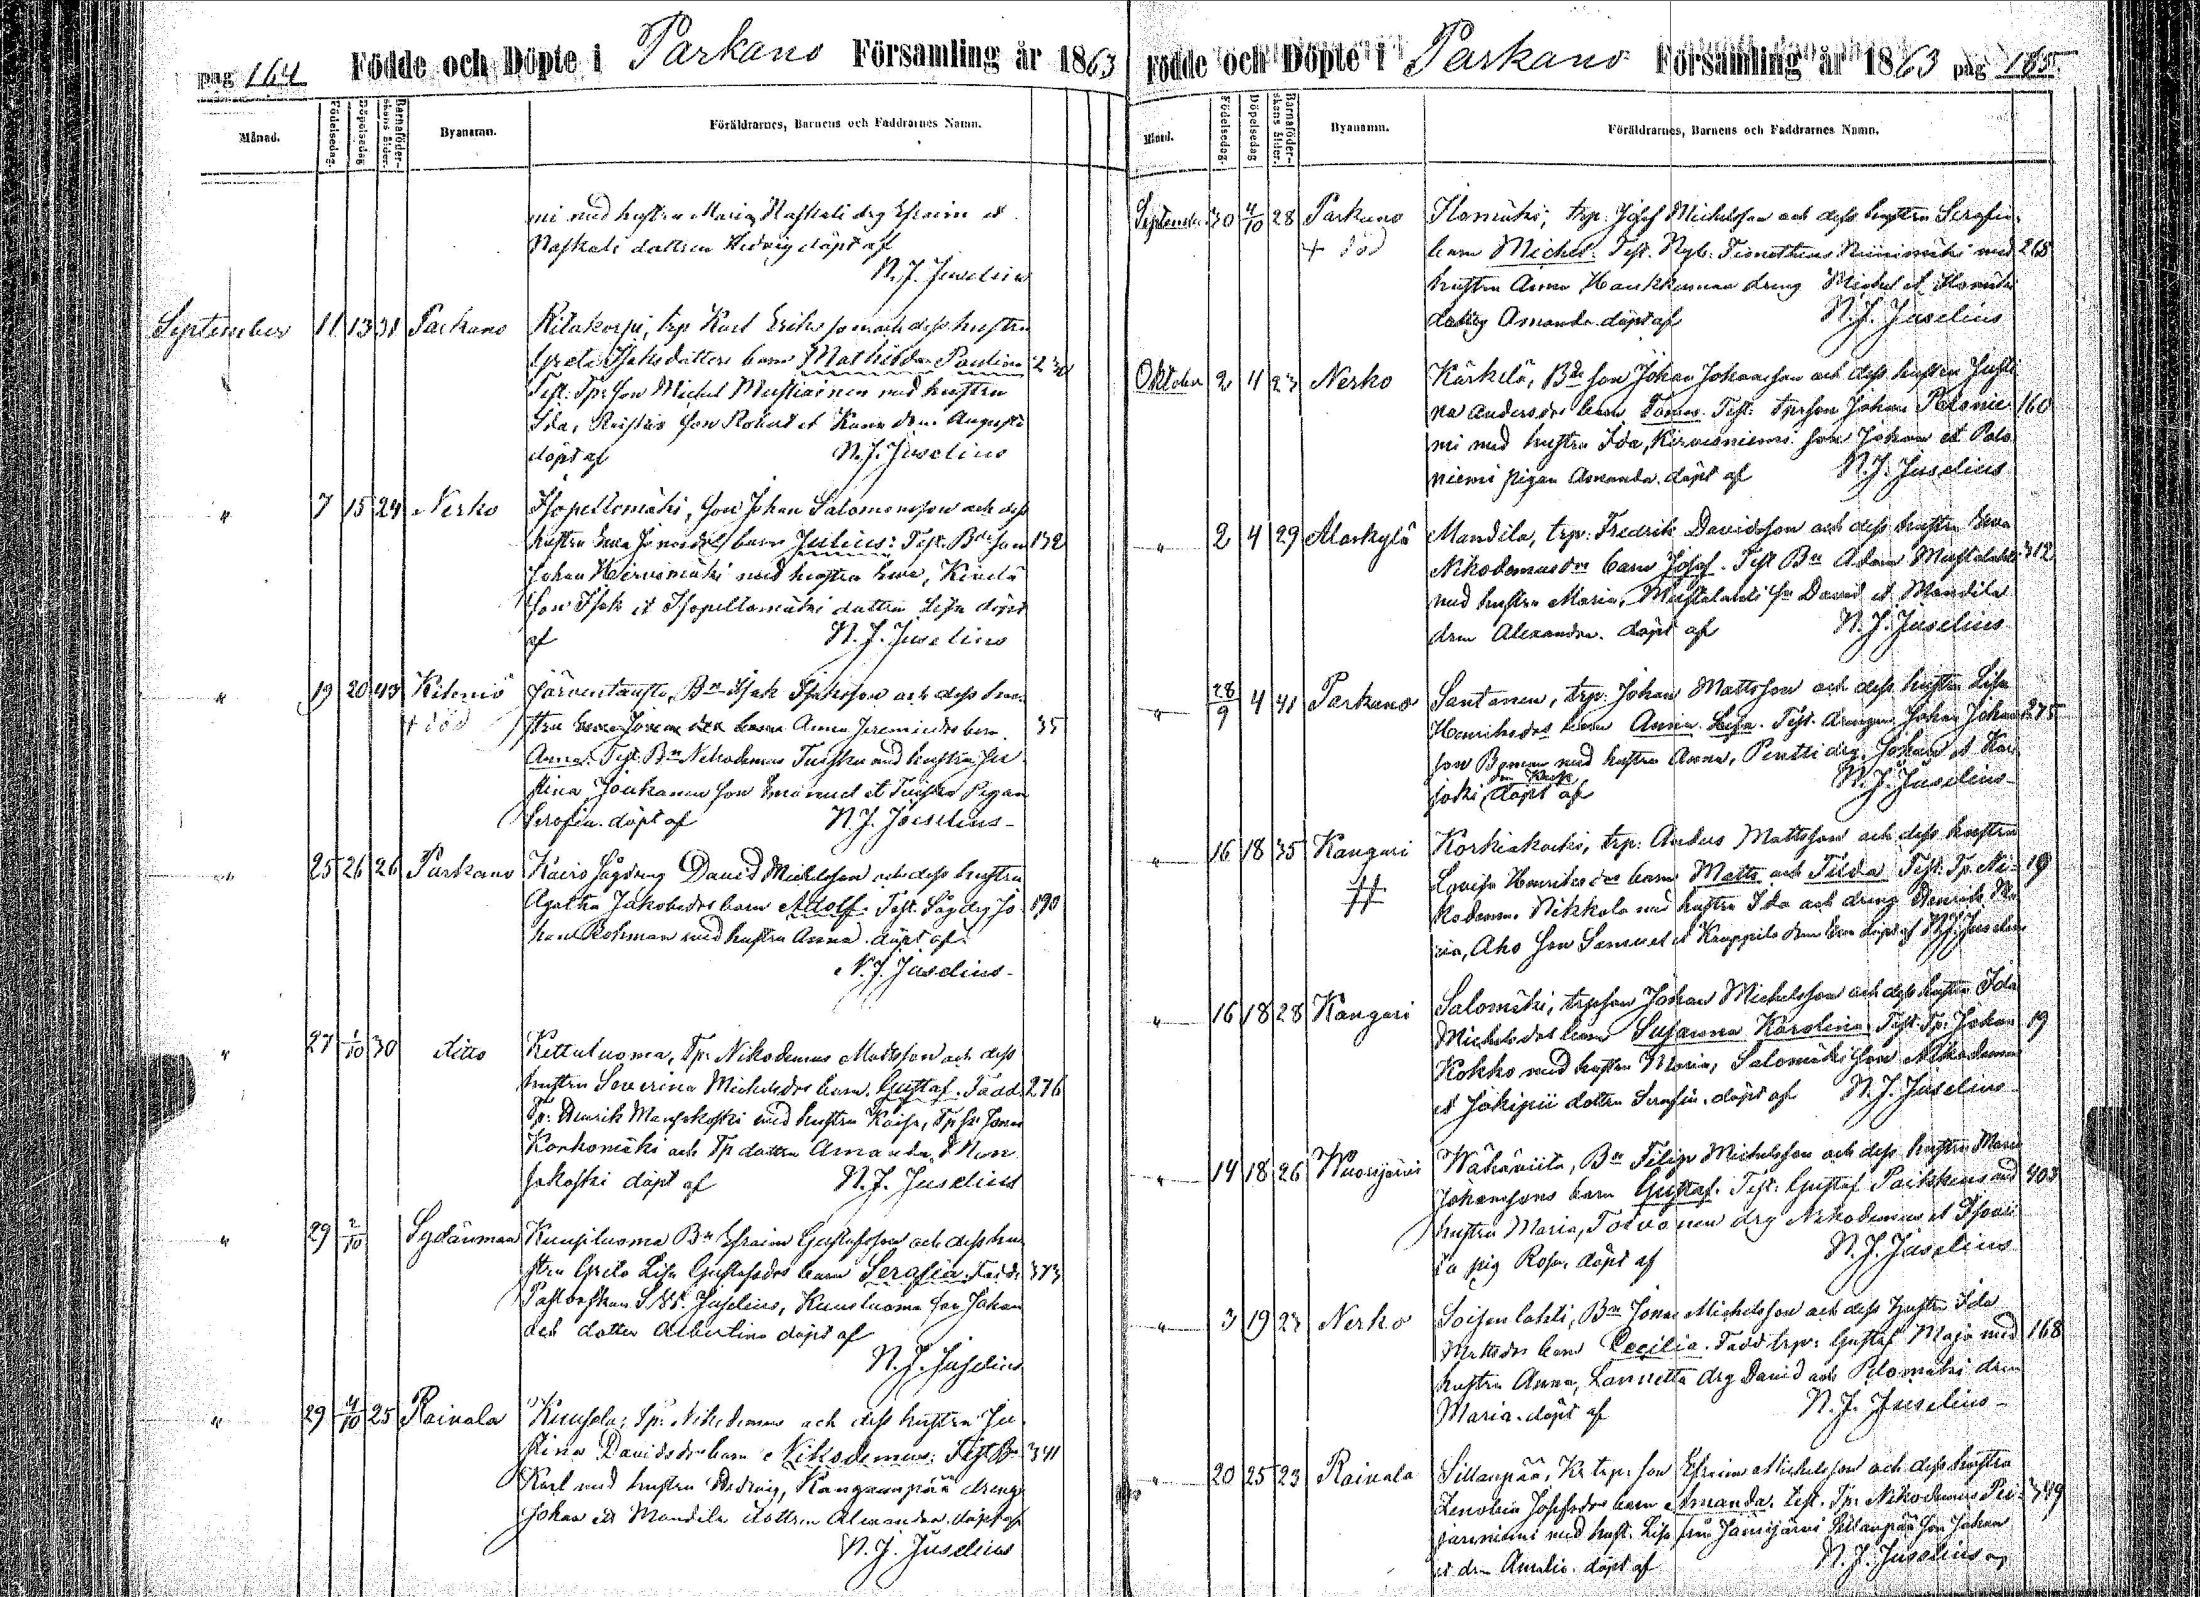 pag 164 Födde och Döpte i Parkano Församling år 1863
Månad. Födelsedag. Döpelsedag Barnaföderskans ålder. Byanamn. Föräldrarnes, Barnens och Faddrarnes Namn.
mi med hustru Maria, Raskali drg Efraim et
Raskali dottren Hedvig döpt af
N. J. Juselius
September 11 13 31 Parkano Ritakorpi, trp Karl Eriksson och dess hustru
Greta Isaksdotters barn Mathilda Paulina
Test: Tp: son Michel Mustiainen med hustru
Ida, son Robert et drn Augusta
döpt af N. J. Juselius
" 7 15 24 Nerko Isopellomäki, son Johan Salomonsson och dess
hustru barn Julius: Test: Bde son 132
Johan Hirvimäki med hustru Eva, Kivelä
son Isak et Isopellomäki dottren Lisa döpt
af N. J. Juselius
" 19 20 43 Kihniö Järventausta, Bn Isak Isaksson och dess hu-
† död stru Anna Jeremiedrs barn 35
Anna. Test: Bn Nikodemus Tuisku med hustru Ju-
stina Joukanen son Emanuel et Tuisku Pigan
Serafia. döpt af N. J. Juselius
" 25 26 26 Parkano Kairo Sågdreng David Michelsson och dess hustru
Agatha Jakobsdrs barn Adolf. Test. Såg drg Jo- 190
han Rohman med hustru Anna. döpt af
N. J. Juselius
" 27 1/10 30 ditto Kettuluoma, Tp: Nikodemus Mattsson och dess
hustru Severina Michelsdrs barn. Gustaf. Fadd: 276
Tp: Henrik Mansikoski med hustru Kaisa, Tp sn Jonas
Korhomäki och Tp dottren Amanda Man-
sikoski döpt af N. J. Juselius
" 29 2/10 Sydänmaa Kuusiluoma Bn Efraim Gustafsson och dess hu-
stru Greta Lisa Gustafsdrs barn Serafia. Fadd: 373
Pastorskan Juselius, Kuusiluoma son Johan
och dotter Albertina döpt af
N. J. Juselius
" 29 4/10 25 Rainala Kuusela; Tp: Nikodemus och dess hustru Ju-
stina Davidsdrs barn Nikodemus: Test Bn 341
Karl med hustru Hedvig, Kangaanpää dreng
Johan et Mandila dottren Alexandra. döpt af
N. J. Juselius
Födde och Döpte i Parkano Församling år 1863 pag 165.
Månad. Födelsedag. Döpelsedag Barnaföderskans ålder. Byanamn. Föräldrarnes, Barnens och Faddrarnes Namn.
September 30 4/10 28 Parkano trp: Josef Michelsson och dess hustru Serafia
† död barn Michel. Test. Nyb. Timotheus Niinimäki med 268
hustru Anna, dreng Michel et
Amanda. döpt af N. J. Juselius
Oktober 2 4 23 Nerko Kärkelä, Bde son Johan Johansson och dess hustru Justi-
na Andersdrs barn Tomas. Test: trpson Johan Polonie- 160
mi med hustru Ida, Kirvesniemi son Johan et Polo-
niemi pigan Amanda. döpt af N. J. Juselius
" 2 4 29 Alaskylä Mandila, trp: Fredrik Davidsson och dess hustru Eva
Nikodemusdrs barn Josef. Test Bn Adam Mustalahti 312
med hustru Maria, Mustalahti sn David et Mandila
drn Alexandra. döpt af N. J. Juselius
" 28/9 4 41 Parkano Santanen, trp: Johan Mattsson och dess hustru Lisa
Henriksdrs barn Anna Lisa. Test. drengen Johan Johans- 275
son med hustru Anna, Pentti drg. Johan et
döpt af N. J. Juselius
" 16 18 35 Kangari Korkiakoski, trp: Anders Mattsson och dess hustru
†† Lovisa Henriksdrs barn Matts och Tilda Test: Tp. Ni- 19
kodemus Nikkola med hustru Ida och dreng Henrik
Aho son Samuel et Kauppila drn Eva döpt af N. J. Juselius
" 16 18 28 Kangari Salomäki, trpson Johan Michelsson och dess hustru Ida
Michelsdrs barn Susanna Karolina. Test: Tp: Johan 19
Kokko med hustru Maria, Salomäki son Nikodemus
et Jokipii dottren Serafia. döpt af N. J. Juselius
" 14 18 26 Wuorijärvi Wähäniitu, Bn Filip Michelsson och dess hustru Maria
Johanssons barn Gustaf. Test: Gustaf Paikkinen med 403
hustru Maria, Toivonen drg Nikodemus et
pig Rosa. döpt af N. J. Juselius
" 3 19 23 Nerko Soisenlahti, Bn Jonas Michelsson och dess hustru Ida
Mattsdrs barn Cecilia. Fadd trp: Gustaf Maja med 168
hustru Anna, Lannetta drg David och drn
Maria. döpt af N. J. Juselius
" 20 25 23 Rainala Sillanpää, Kr trp: son Efraim Michelsson och dess hustru
Zenobia Josefsdrs barn Amanda. test. Tp: Nikodemus 349
med hust. Lisa från Jämijärvi Sillanpää son Johan
et drn Amalia. döpt af N. J. Juselius